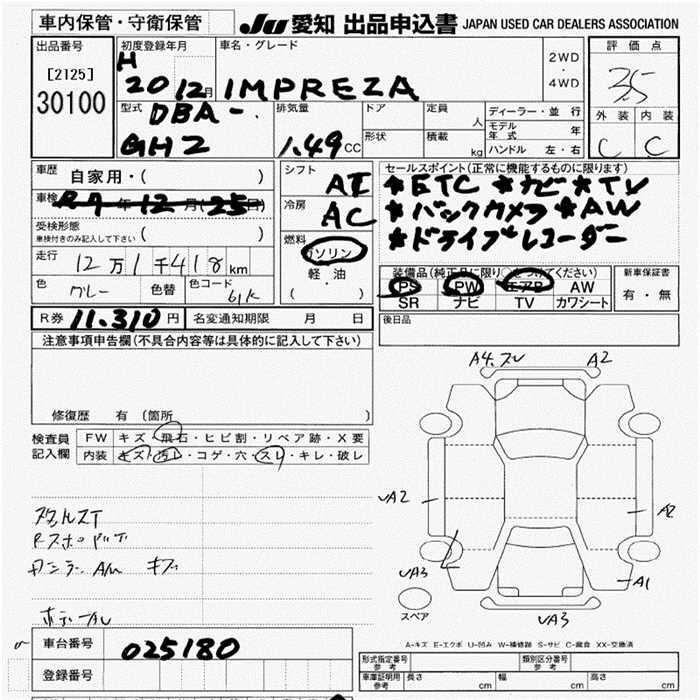 車内保管・守衛保管 JU 愛知 出品申込書 JAPAN USED CAR DEALERS ASSOCIATION
出品番号 初度登録年月 車名・グレード 2WD 評価点
[2125] H
30100 20 12月 IMPREZA ・ 4WD 3.5
型式 DBA- 排気量 ドア 定員 人 ディーラー・並行 外装 内装
GH2 1.49cc 形状 積載 kg モデル年式 年 C C
ハンドル 左・右
車歴 自家用・( ) シフト AT セールスポイント(正常に機能するものに限ります)
車検 R7年12月(25日) 冷房 AC *ETC *ナビ *TV
受検形態 車検付きのみ記入して下さい ( ) *バックカメラ *AW
走行 12万1千418km 燃料 ガソリン *ドライブレコーダー
色 グレー 色替 色コード 61K 軽油 ( ・ )
装備品(純正品に限り○をつけてください) 新車保証書
PS PW エアB AW 有・無
SR ナビ TV カワシート
R券 11.310円 名変通知期限 月 日 後日品
注意事項申告欄(不具合内容等は具体的に記入して下さい)
修復歴 有 (箇所 )
検査員記入欄 FW キズ・飛石・ヒビ割・リペア跡・X要
内装 キズ・汚レ・コゲ・穴・スレ・キレ・破レ
A2
UA2 A2
UA3 A1
スペア UA3
A-キズ E-エクボ U-凹み W-補修跡 S-サビ C-腐食 XX-交換済
車台番号 025180
登録番号
型式指定番号 参考 類別区分番号 参考
車庫証明用 参考 長さ cm 幅 cm 高さ cm